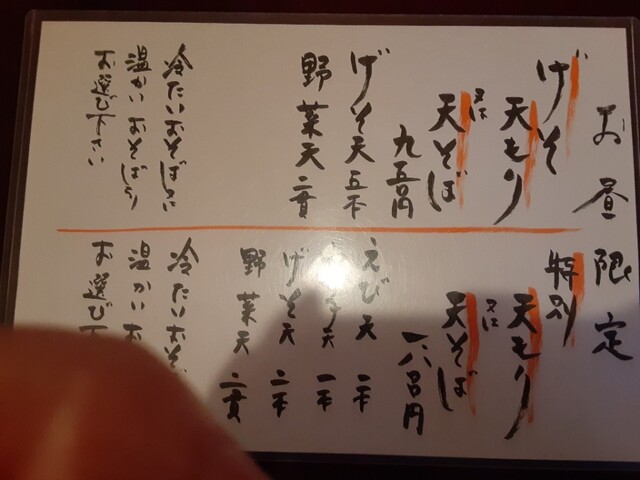 お昼限定
げそ
天もり
又は
天そば
九五〇円
げそ天 五本
野菜天 二貫
冷たいおそば
温かいおそばより
お選び下さい
特別
天もり
又は
天そば
一六〇〇円
えび天 一本
天 一本
げそ天 二本
野菜天 二貫
冷たいおそ
温かいお
お選び下